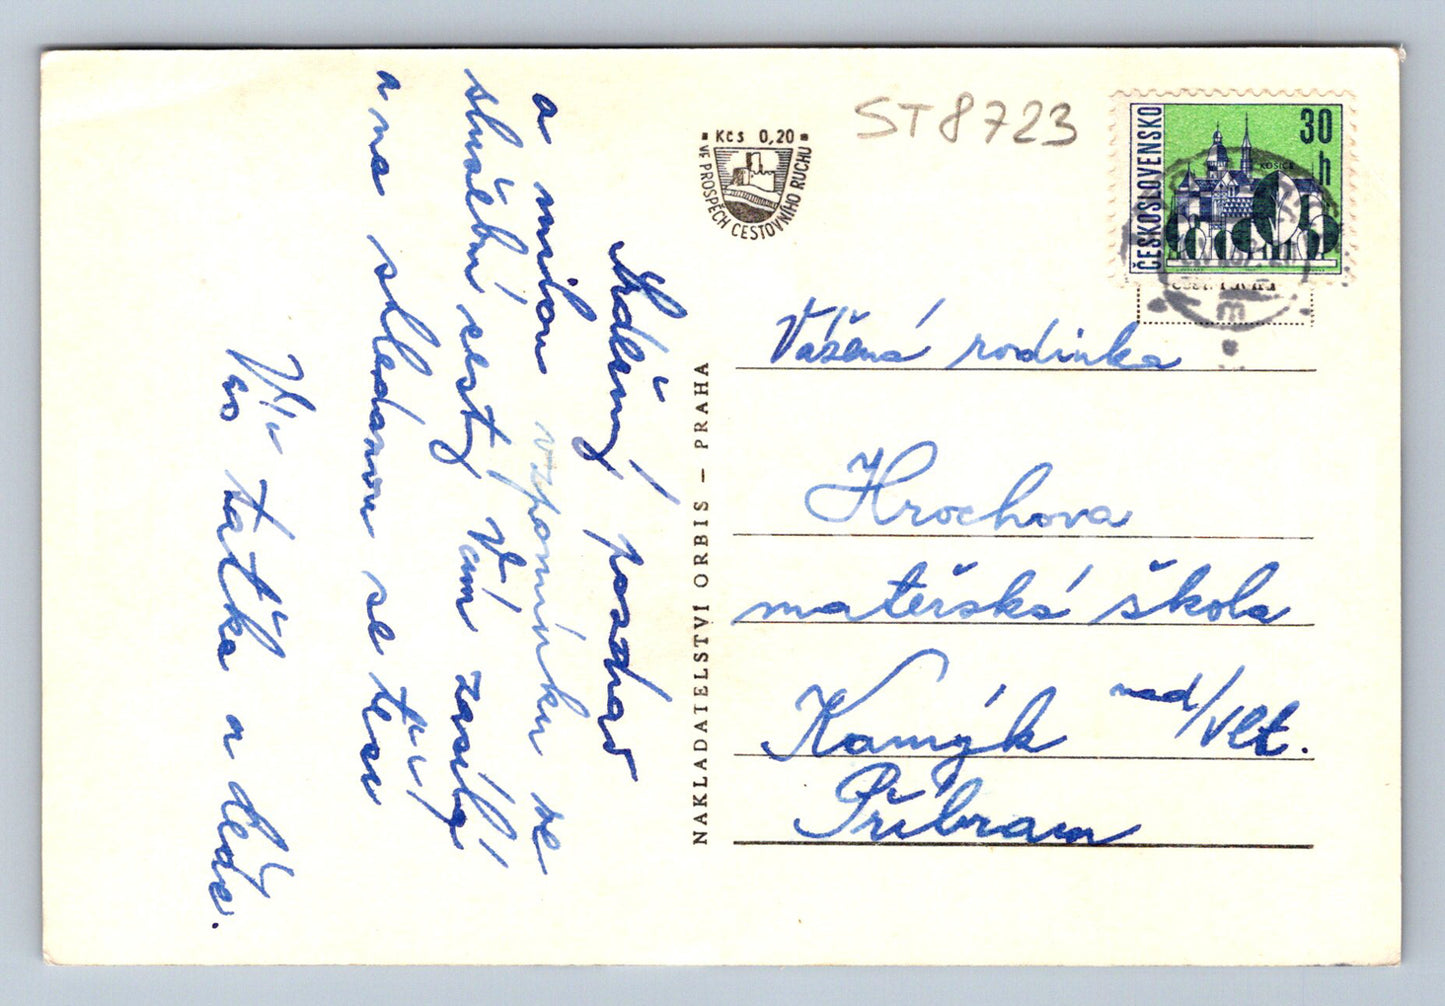 Srdečný pozdrav
a milou vzpomínku ze
služební cesty Vám zasílá
a na shledanou se těší
Váš taťka a děda.
ST8723
Kčs 0,20
VE PROSPĚCH CESTOVNÍHO RUCHU
ČESKOSLOVENSKO
30
h
KOŠICE
NAKLADATELSTVÍ ORBIS – PRAHA
Vážená rodinka
Hrochova
mateřská škola
Kamýk nad/Vlt.
Příbram